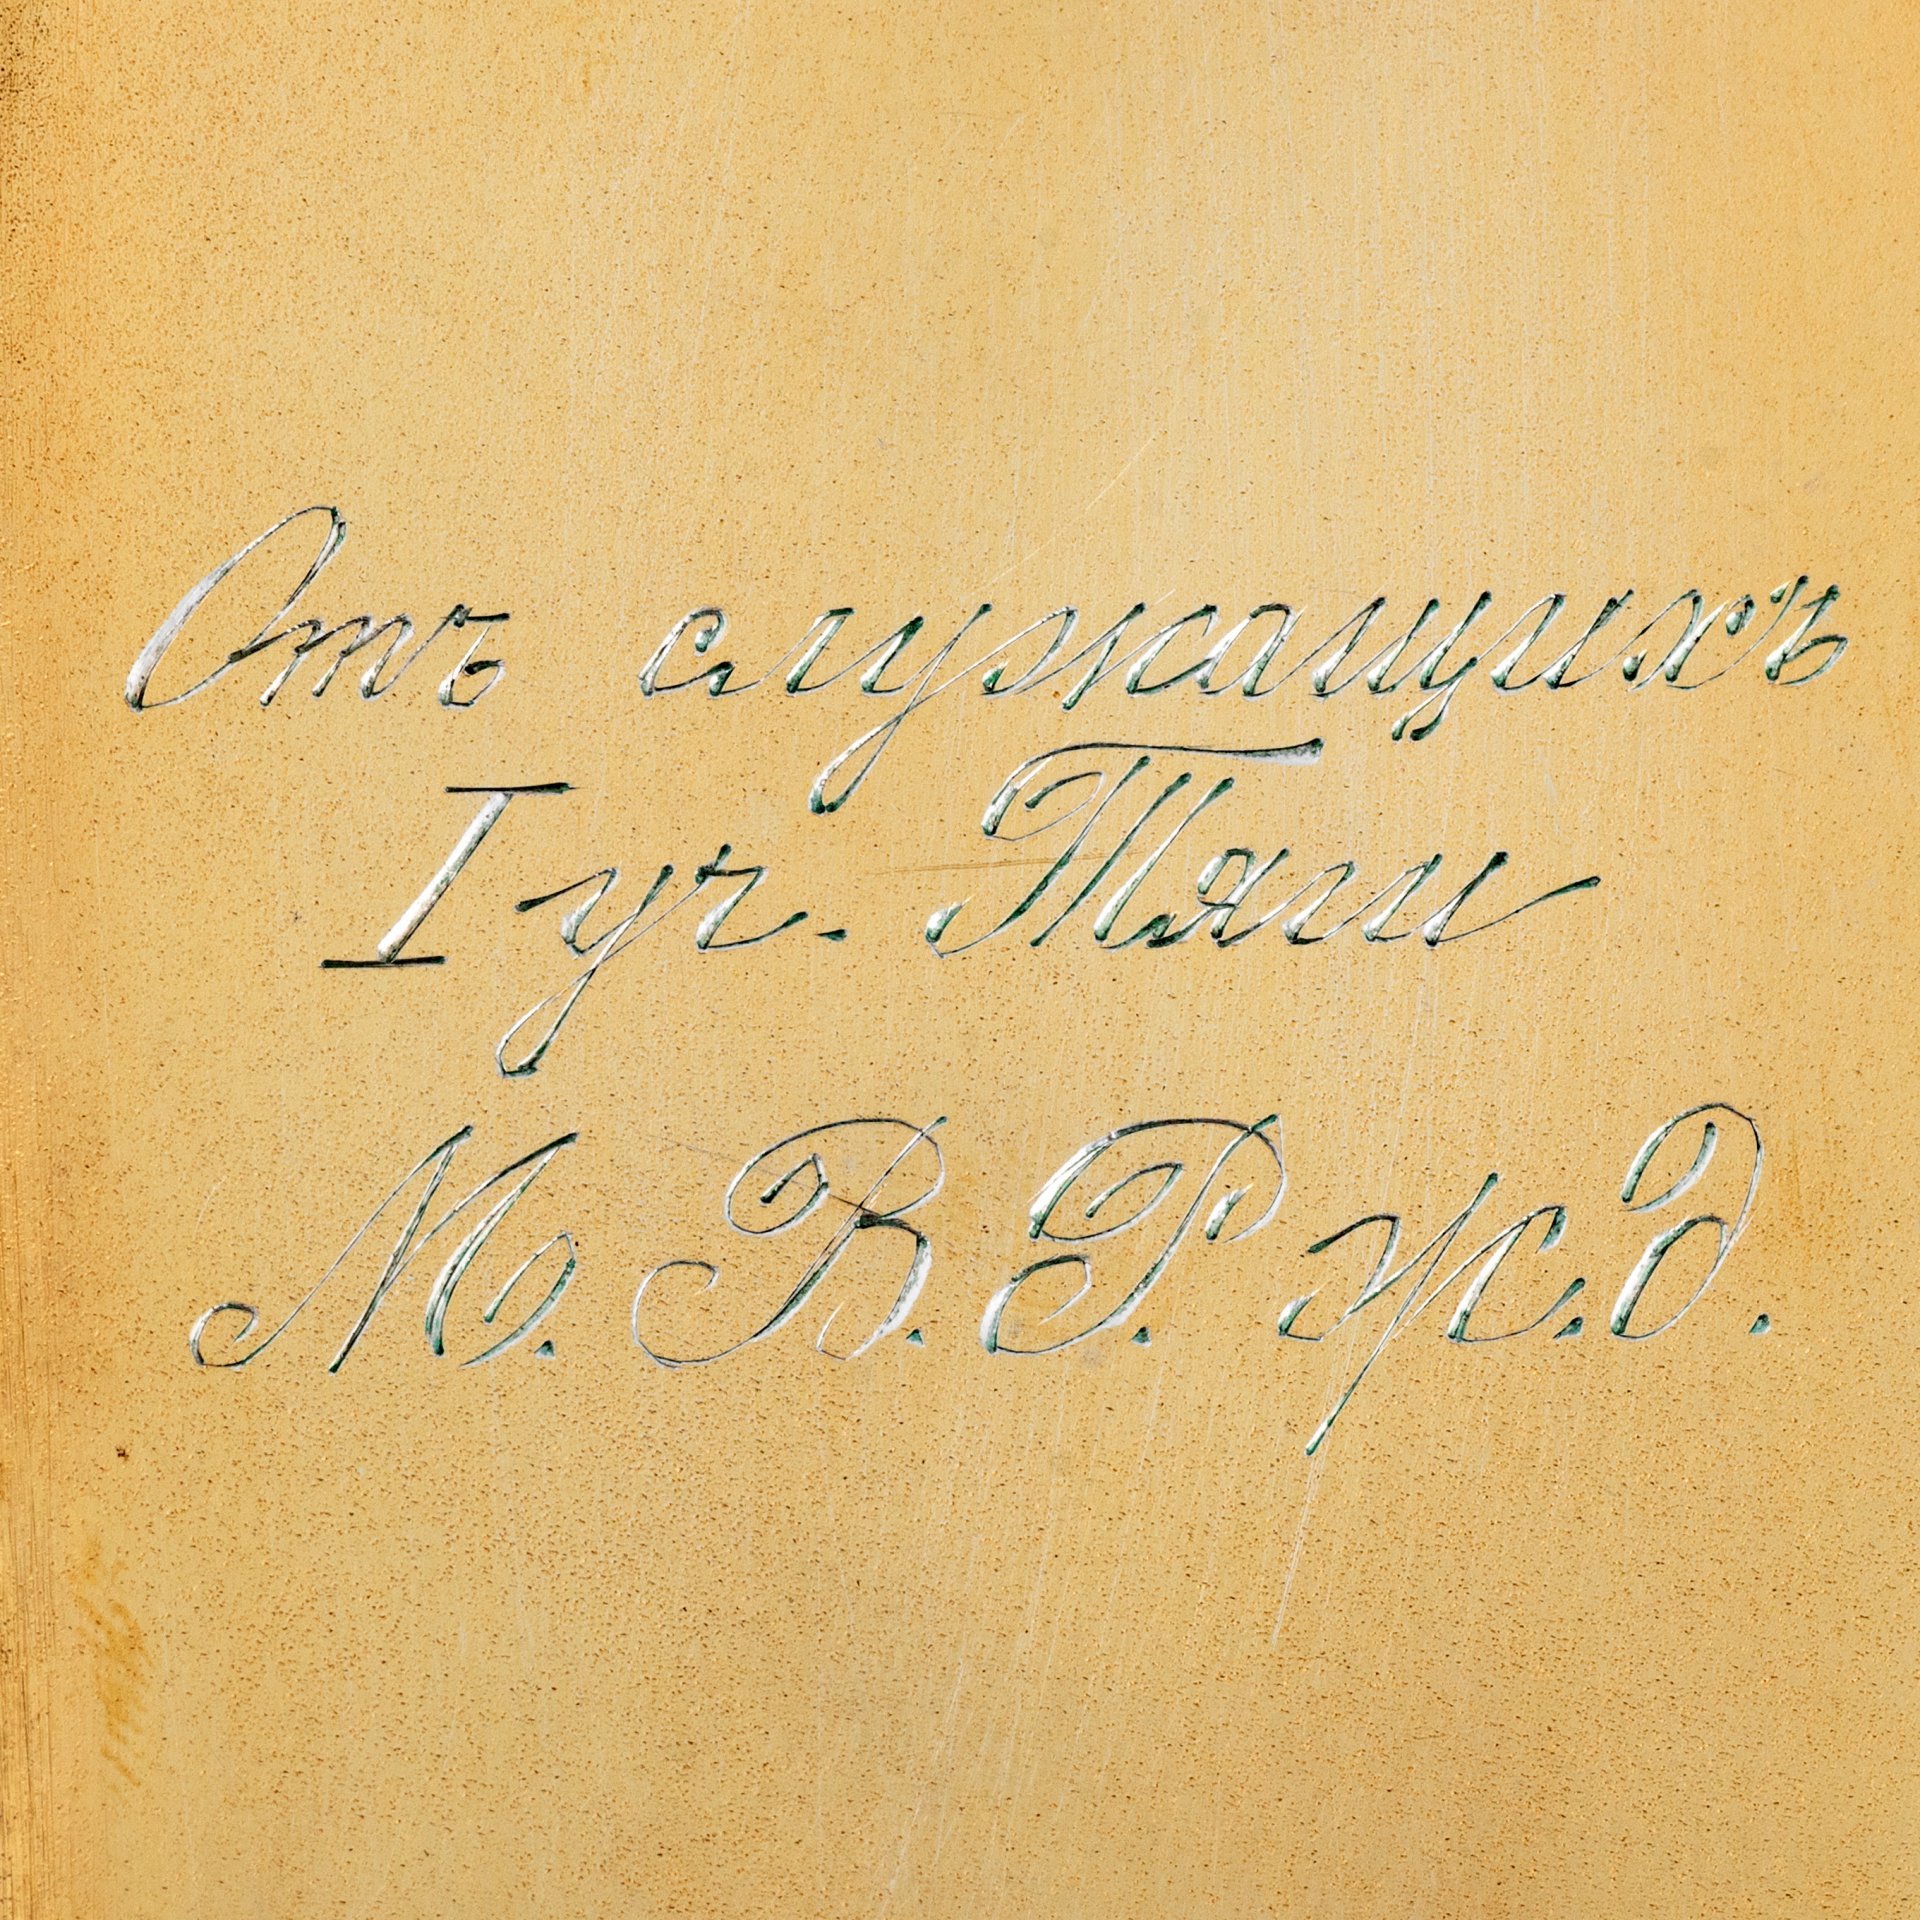 Отъ служащихъ
I уч. Тяги
М. В. Р. ж. д.